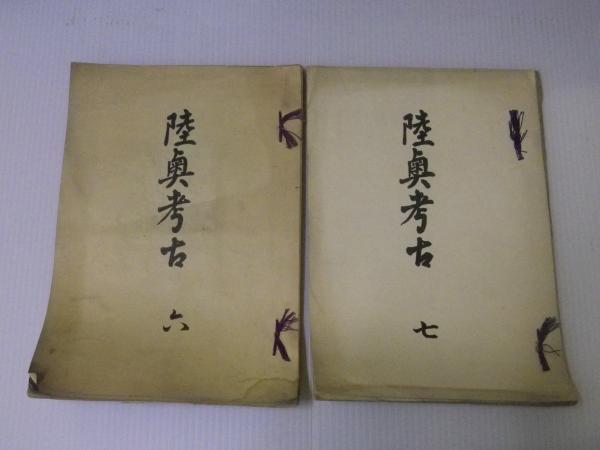 陸奥考古
六
陸奥考古
七